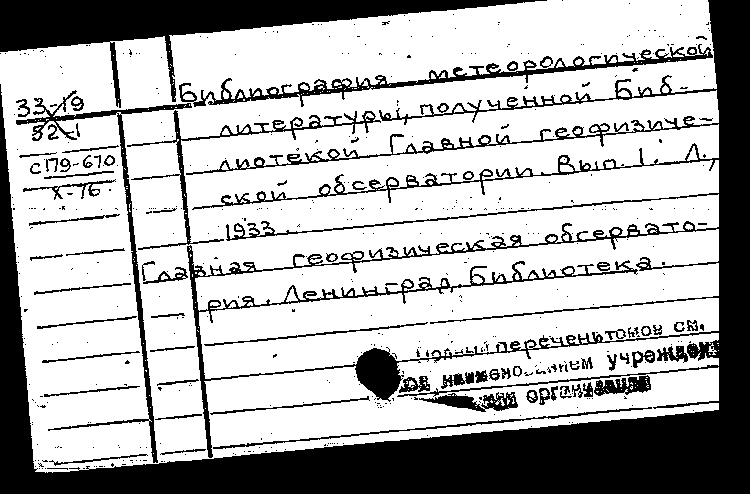 33-19
52-1
С179-670
X-76
Библиография метеорологической
литературы, полученной Биб-
лиотекой Главной геофизиче-
ской обсерватории. Вып. 1. Л.,
1933.
Главная геофизическая обсервато-
рия. Ленинград. Библиотека.
Полный перечень томов см.
под наименованием учрежден
или организации